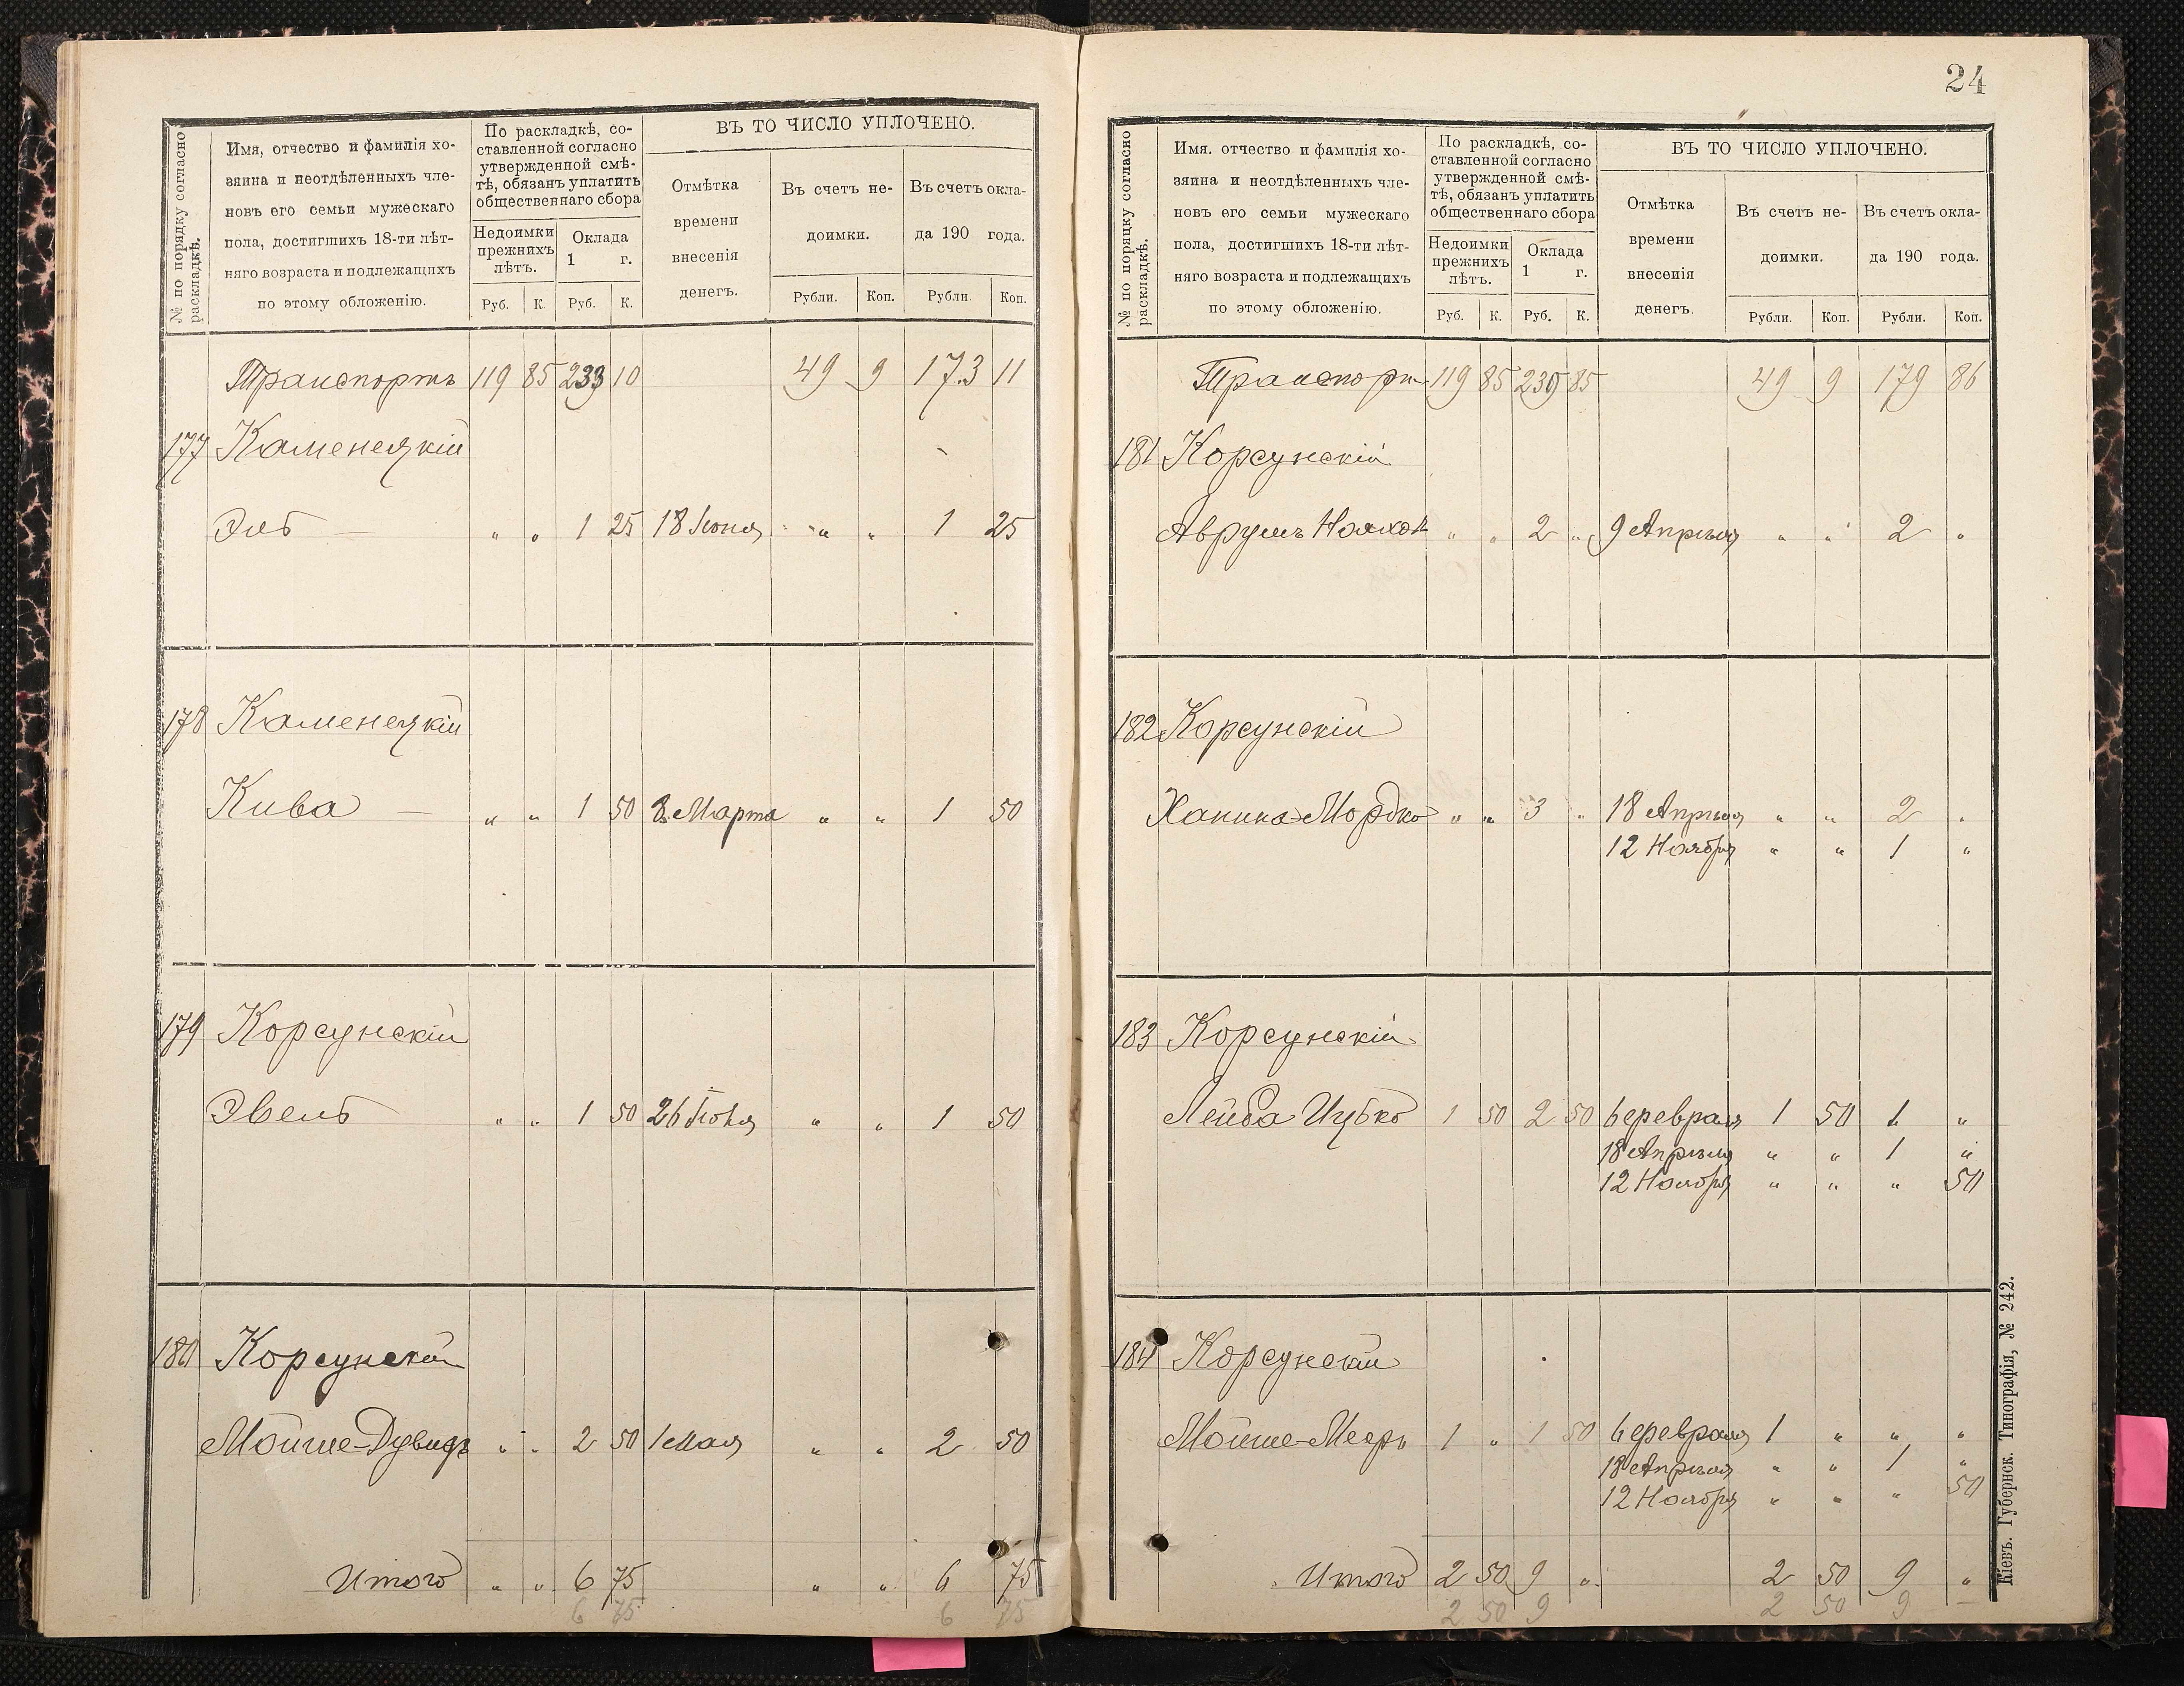 № по порядку согласно
раскладкѣ.
Имя, отчество и фамилія хо-
зяина и неотдѣленныхъ чле-
новъ его семьи мужескаго
пола, достигшихъ 18-ти лѣт-
няго возраста и подлежащихъ
по этому обложенію.
По раскладкѣ, со-
ставленной согласно
утвержденной смѣ-
тѣ, обязанъ уплатить
общественнаго сбора
Недоимки
прежнихъ
лѣтъ.
Оклада
1 г.
Руб. К. Руб. К.
ВЪ ТО ЧИСЛО УПЛОЧЕНО.
Отмѣтка
времени
внесенія
денегъ.
Въ счетъ не-
доимки.
Въ счетъ окла-
да 190 года.
Рубли. Коп. Рубли. Коп.
Транспортъ 119 85 233 10 49 9 173 11
177 Каменецкій
Эль — " " 1 25 18 Іюня " " 1 25
178 Каменецкій
Кива — " " 1 50 8 Марта " " 1 50
179 Корсунскій
Эвель " " 1 50 26 Іюня " " 1 50
180 Корсунскій
Мойше-Дувидъ " " 2 50 1 Мая " " 2 50
Итого " " 6 75 " " 6 75
6 75 6 75
24
№ по порядку согласно
раскладкѣ.
Имя. отчество и фамилія хо-
зяина и неотдѣленныхъ чле-
новъ его семьи мужескаго
пола, достигшихъ 18-ти лѣт-
няго возраста и подлежащихъ
по этому обложенію.
По раскладкѣ, со-
ставленной согласно
утвержденной смѣ-
тѣ, обязанъ уплатить
общественнаго сбора
Недоимки
прежнихъ
лѣтъ.
Оклада
1 г.
Руб. К. Руб. К.
ВЪ ТО ЧИСЛО УПЛОЧЕНО.
Отмѣтка
времени
внесенія
денегъ.
Въ счетъ не-
доимки.
Въ счетъ окла-
да 190 года.
Рубли. Коп. Рубли. Коп.
Транспор 119 85 239 85 49 9 179 86
181 Корсунскій
Аврумъ " " 2 " 9 Апрѣля " " 2 "
182 Корсунскій
Ханина-Мордко " " 3 " 18 Апрѣля " " 2 "
12 Ноября " " 1 "
183 Корсунскій
Лейба Ицько 1 50 2 50 6 февраля 1 50 1 "
18 Апрѣля " " 1 "
12 Ноября " " " 50
184 Корсунскій
Мойше-Мееръ 1 " 1 50 6 февраля 1 " " "
18 Апрѣля " " 1 "
12 Ноября " " " 50
Итого 2 50 9 " 2 50 9 "
2 50 9 2 50 9 —
Кіевъ. Губернск. Типографія, № 242.